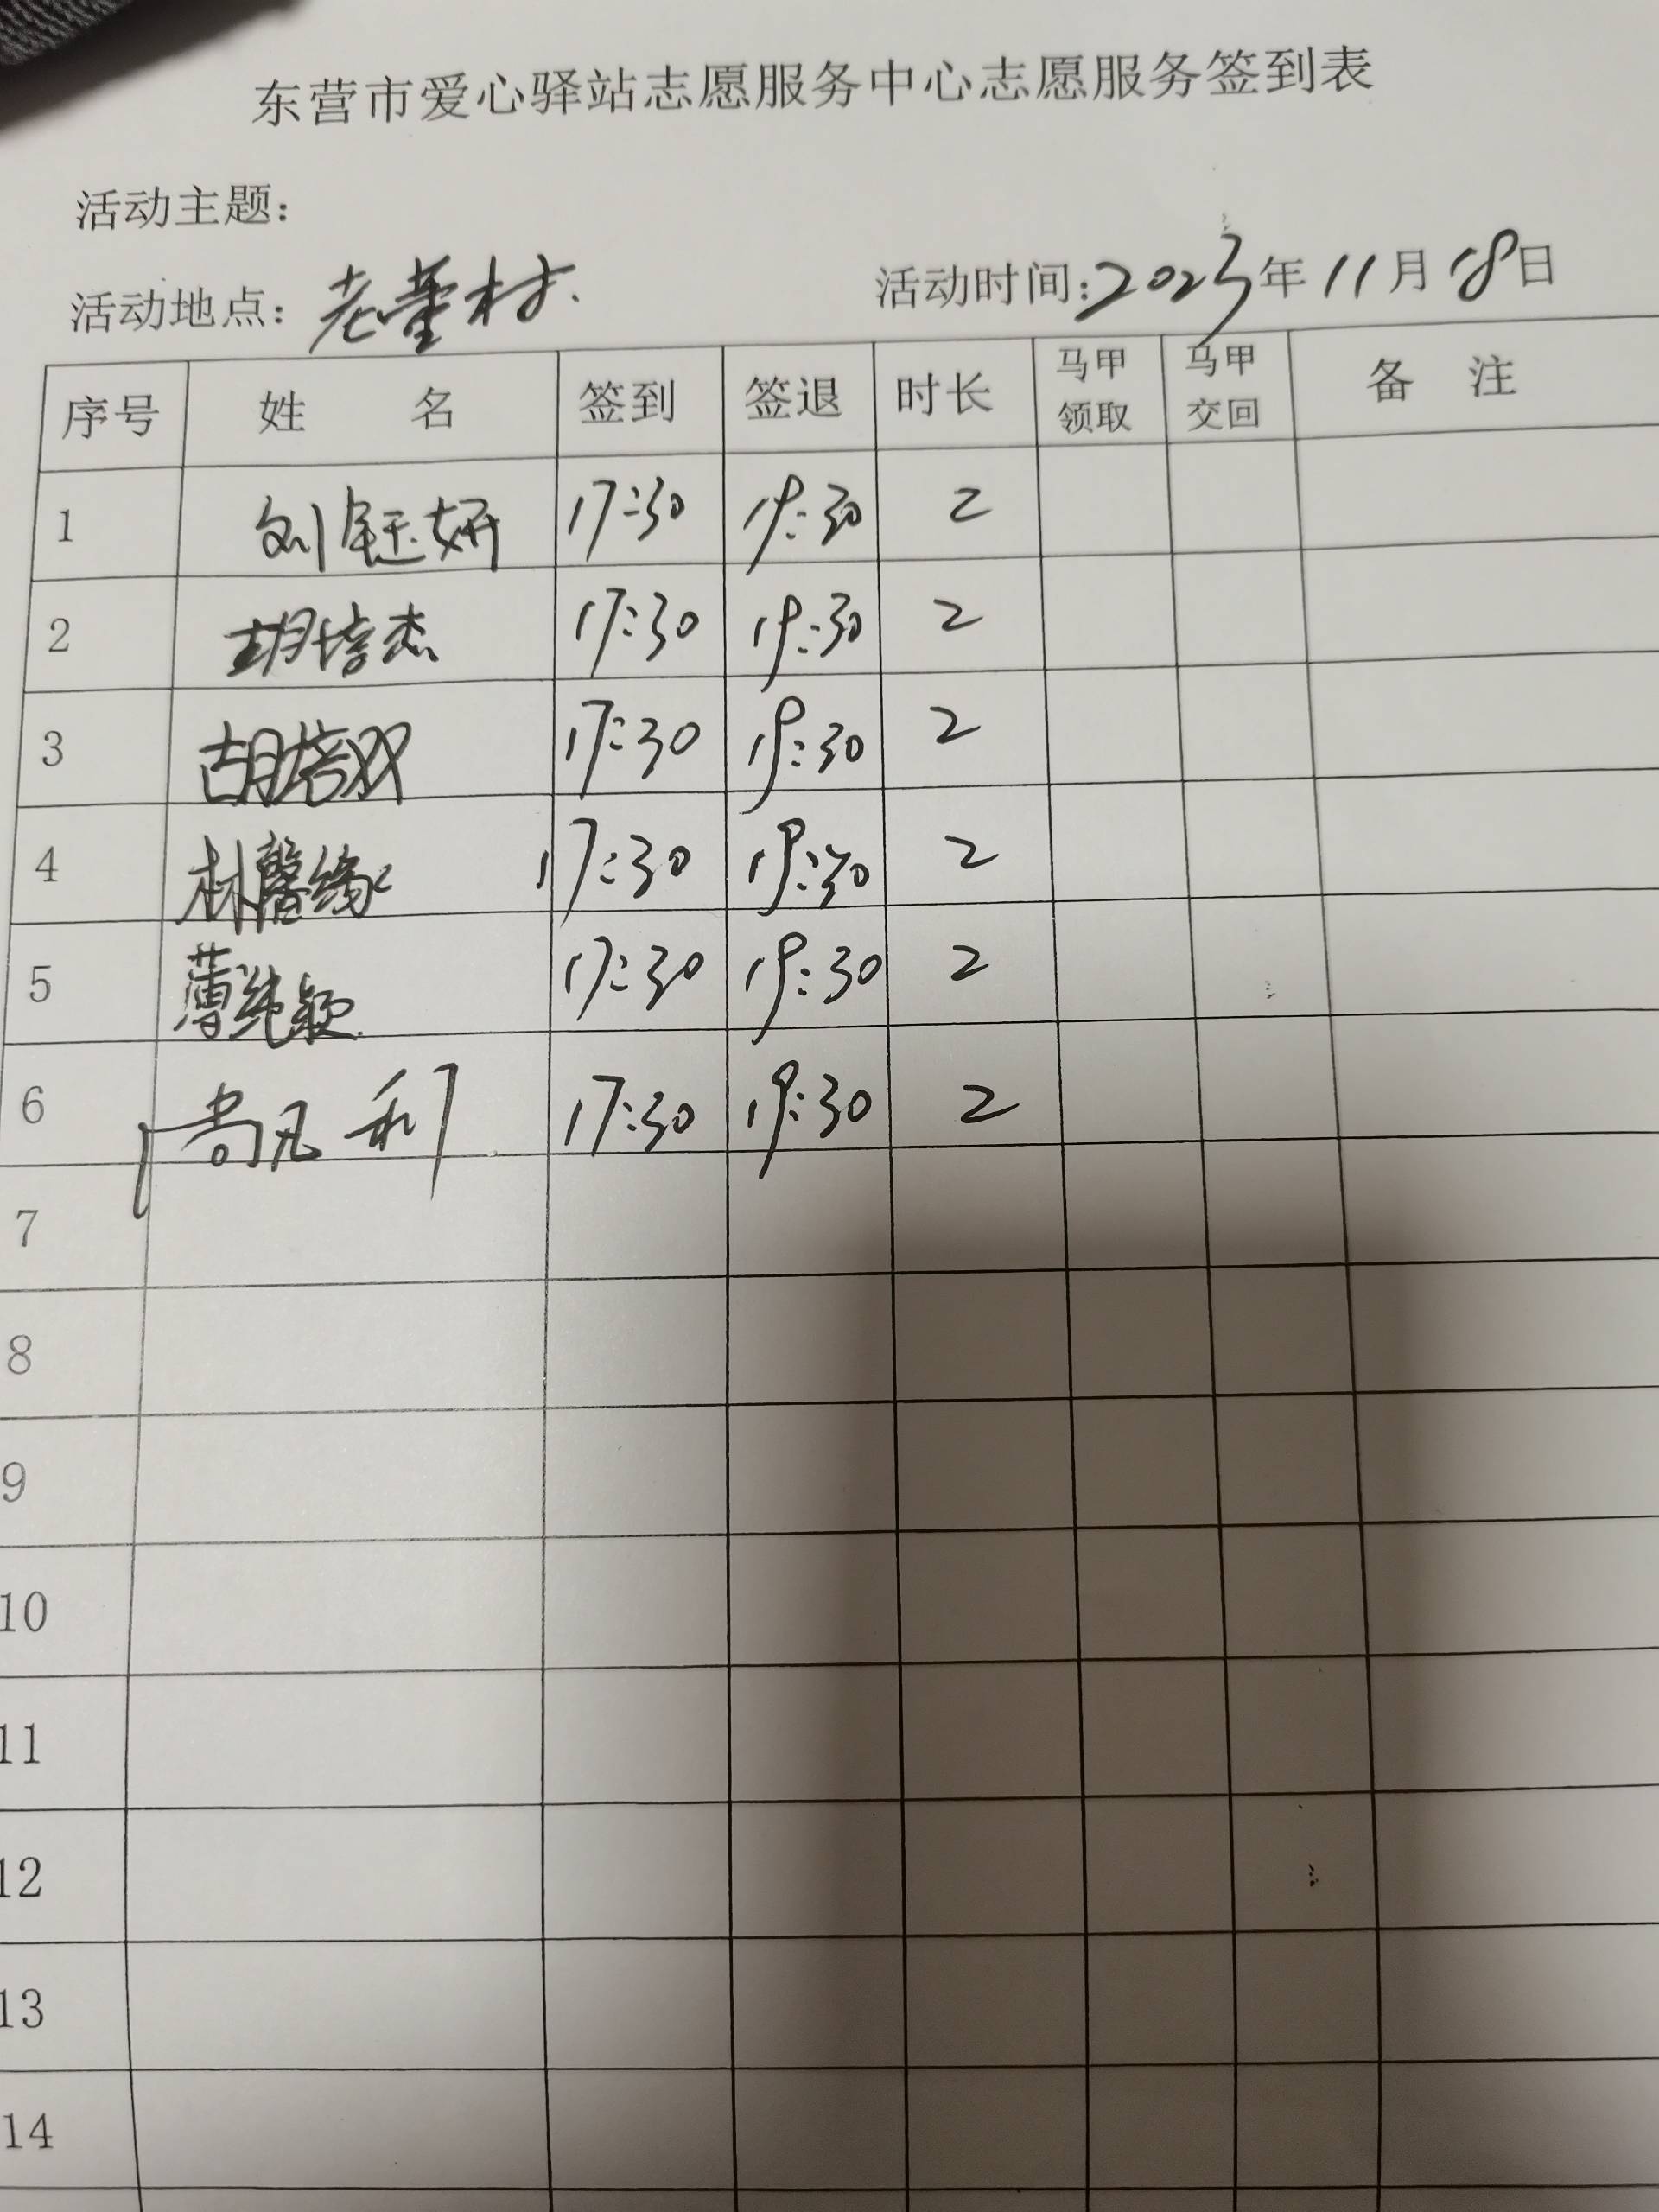 东营市爱心驿站志愿服务中心志愿服务签到表
活动主题：
活动地点：老董村. 活动时间：2023年11月18日
序号 姓 名 签到 签退 时长 马甲领取 马甲交回 备 注
1 刘钰妍 17:30 19:30 2
2 胡培杰 17:30 19:30 2
3 胡培双 17:30 19:30 2
4 林馨缘 17:30 19:30 2
5 薄纯颖 17:30 19:30 2
6 尚凡利 17:30 19:30 2
7
8
9
10
11
12
13
14